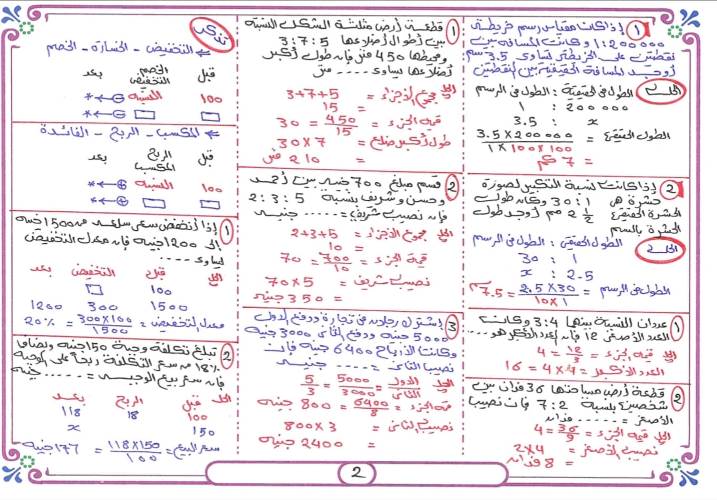 ① إذا كان مقياس رسم خريطة
1:200000 وكانت المسافة بين
نقطتين على الخريطة تساوى 3.5 سم
أوجد المسافة الحقيقية بين النقطتين
الحل الطول فى الرسم : الطول فى الحقيقة
1 : 200000
3.5 : x
الطول الحقيقى = 3.5 × 200000 / 1 × 100 × 1000
= 7 كم
② إذا كانت نسبة التكبير لصورة
حشرة هى 30:1 وكان طول
الحشرة الحقيقى 2 1/2 مم أوجد طول
الحشرة بالرسم
الحل الطول فى الرسم : الطول الحقيقى
30 : 1
x : 2.5
الطول فى الرسم = 2.5 × 30 / 10 × 1 = 7.5 سم
① عددان النسبة بينهما 3:4 وكانت
العدد الأصغر 12 فإن العدد الأكبر هو ....
الحل قيمة الجزء = 12/3 = 4
العدد الأكبر = 4 × 4 = 16
② قطعة أرض مساحتها 36 فدان بين
شخصين بنسبة 7:2 فإن نصيب
الأصغر = ..... فدان
الحل قيمة الجزء = 36/9 = 4
نصيب الأصغر = 2×4
= 8 فدان
① قطعة أرض مثلثة الشكل النسبة
بين أطوال أضلاعها 3:7:5
ومحيطها 450 متر فإن طول أكبر
أضلاعها يساوى .... متر
الحل مجموع الأجزاء = 3+7+5
= 15
قيمة الجزء = 450/15 = 30
طول أكبر ضلع = 30×7
= 210 متر
② قسم مبلغ 700 جنيه بين أحمد
وحسن وشريف بنسبة 2:3:5
فإن نصيب شريف = ..... جنيه
الحل مجموع الأجزاء = 2+3+5
= 10
قيمة الجزء = 700/10 = 70
نصيب شريف = 70×5
= 350 جنيه
③ اشترك رجلان فى تجارة ودفع الأول
5000 جنيه ودفع الثانى 3000 جنيه
وكانت الأرباح 6400 جنيه فإن
نصيب الثانى = ..... جنيه
الحل الأول / الثانى = 5000/3000 = 5/3
قيمة الجزء = 6400/8 = 800 جنيه
نصيب الثانى = 800×3
= 2400 جنيه
تذكر
← التخفيض - الخسارة - الخصم
قبل الخصم التخفيض بعد
100 النسبة
← المكسب - الربح - الفائدة
قبل الربح المكسب بعد
100 النسبة
① إذا انخفض سعر سلعة من 1500 جنيه
إلى 1200 جنيه فإن معدل التخفيض
يساوى ....
الحل قبل التخفيض بعد
100
1500 300 1200
معدل التخفيض = 300×100 / 1500 = 20%
② تبلغ تكلفة وجبة 150 جنيه ويضاف
18% من سعر التكلفة ربحا على الوجبة
فإن سعر بيع الوجبة = ..... جنيه
الحل قبل الربح بعد
100 18 118
150 x
سعر البيع = 118×150 / 100 = 177 جنيه
2